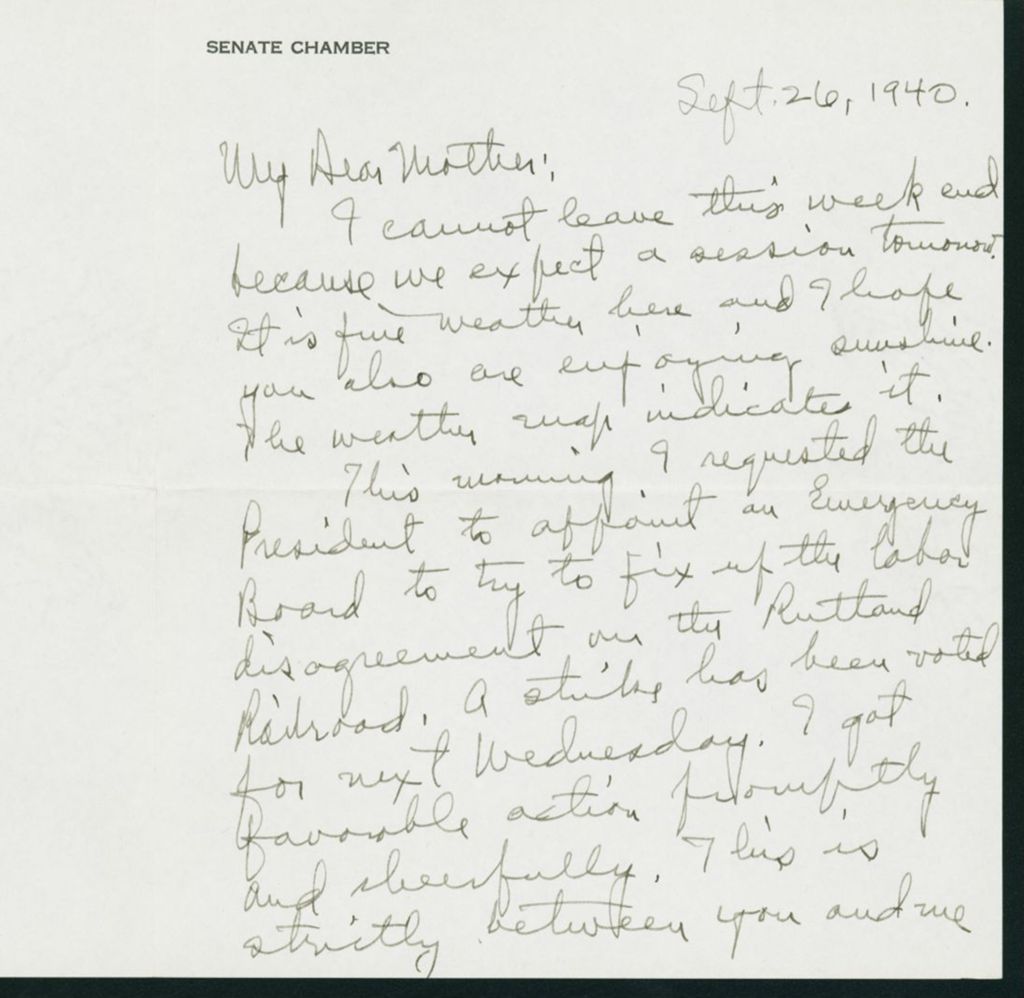 SENATE CHAMBER
Sept. 26, 1940.
My Dear Mother:
I cannot leave this week end
because we expect a session tomorrow.
It is fine weather here and I hope
you also are enjoying sunshine.
The weather map indicates it.
This morning I requested the
President to appoint an Emergency
Board to try to fix up the labor
disagreement on the Rutland
Railroad. A strike has been voted
for next Wednesday. I got
favorable action promptly
and cheerfully. This is
strictly between you and me